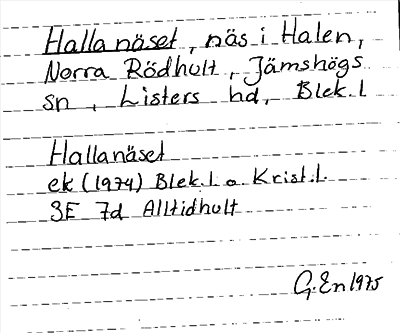 Hallanäset, näs i Halen,
Norra Rödhult, Jämshögs
sn, Listers hd, Blek.l
Hallanäset
ek (1974) Blek.l. o. Krist.l.
3E 7d Alltidhult
G.En 1975